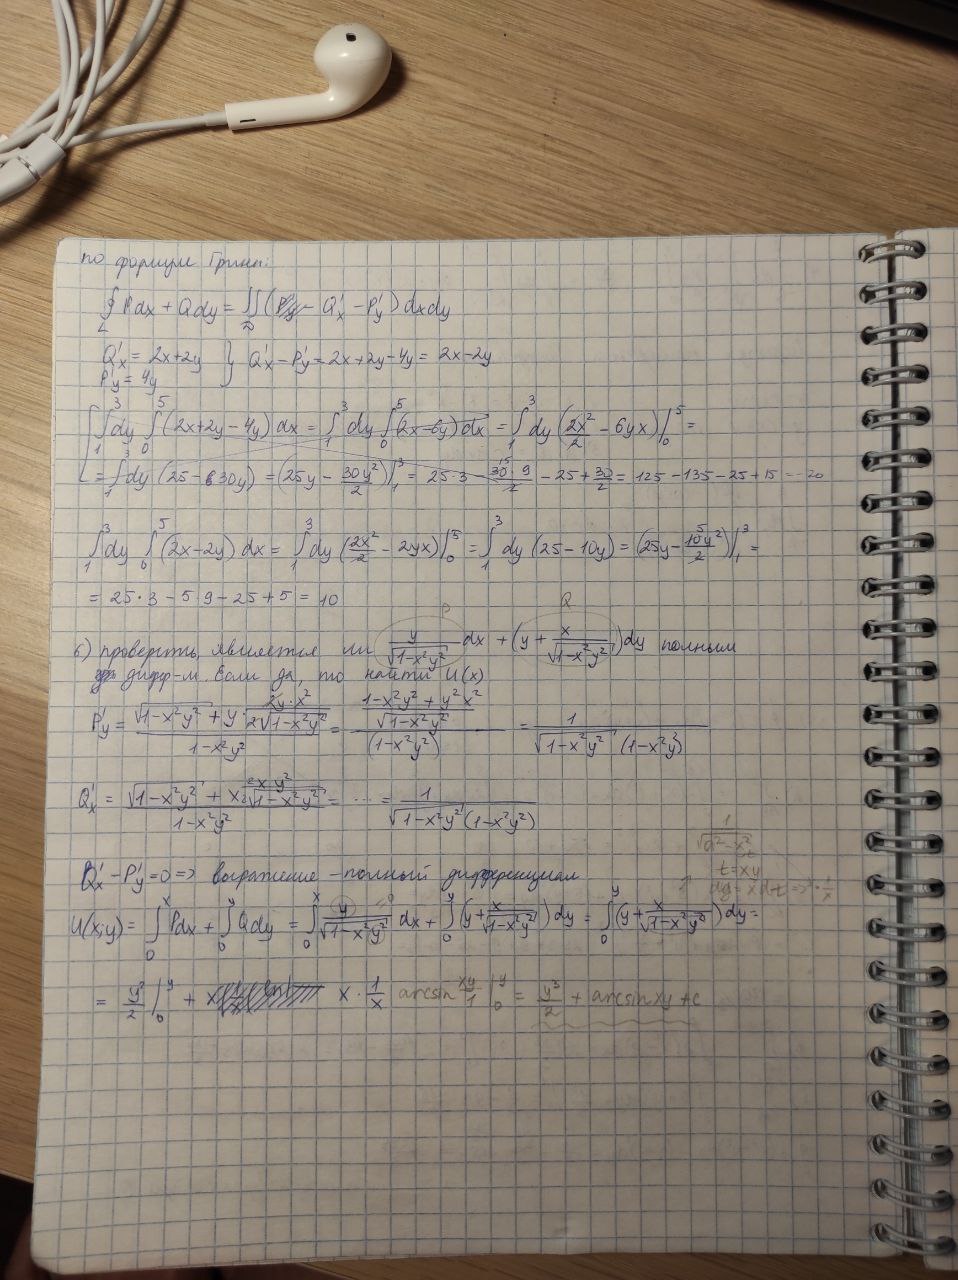 по формуле Грина:
∮_L Pdx + Qdy = ∬_D (Q'x − P'y) dxdy
Q'x = 2x+2y } Q'x − P'y = 2x+2y−4y = 2x−2y
P'y = 4y
∫₁³ dy ∫₀⁵ (2x+2y−4y) dx = ∫₁³ dy ∫₀⁵ (2x−6y) dx = ∫₁³ dy (2x²/2 − 6yx)|₀⁵ =
= ∫₁³ dy (25 − 30y) = (25y − 30y²/2)|₁³ = 25·3 − 30·9/2 − 25 + 30/2 = 125 − 135 − 25 + 15 = −20
∫₁³ dy ∫₀⁵ (2x−2y) dx = ∫₁³ dy (2x²/2 − 2yx)|₀⁵ = ∫₁³ dy (25−10y) = (25y − 10y²/2)|₁³ =
= 25·3 − 5·9 − 25 + 5 = 10
P Q
6) проверить, является ли y/√(1−x²y²) dx + (y + x/√(1−x²y²)) dy полным
дифф-м. Если да, то найти U(x)
P'y = (√(1−x²y²) + y 2y·x²/(2√(1−x²y²)))/(1−x²y²) = ((1−x²y²+y²x²)/√(1−x²y²))/(1−x²y²) = 1/(√(1−x²y²) (1−x²y²))
Q'x = (√(1−x²y²) + x 2xy²/(2√(1−x²y²)))/(1−x²y²) = ... = 1/(√(1−x²y²)(1−x²y²))
1/√(a²−x²)
t=xy
Q'x − P'y = 0 => выражение – полный дифференциал
U(x;y) = ∫₀ˣ Pdx + ∫₀ʸ Qdy = ∫₀ˣ y/√(1−x²y²) dx + ∫₀ʸ (y + x/√(1−x²y²)) dy = ∫₀ʸ (y + x/√(1−x²y²)) dy =
= y²/2 |₀ʸ + x · 1/x arcsin xy/1 |₀ʸ = y²/2 + arcsin xy + c